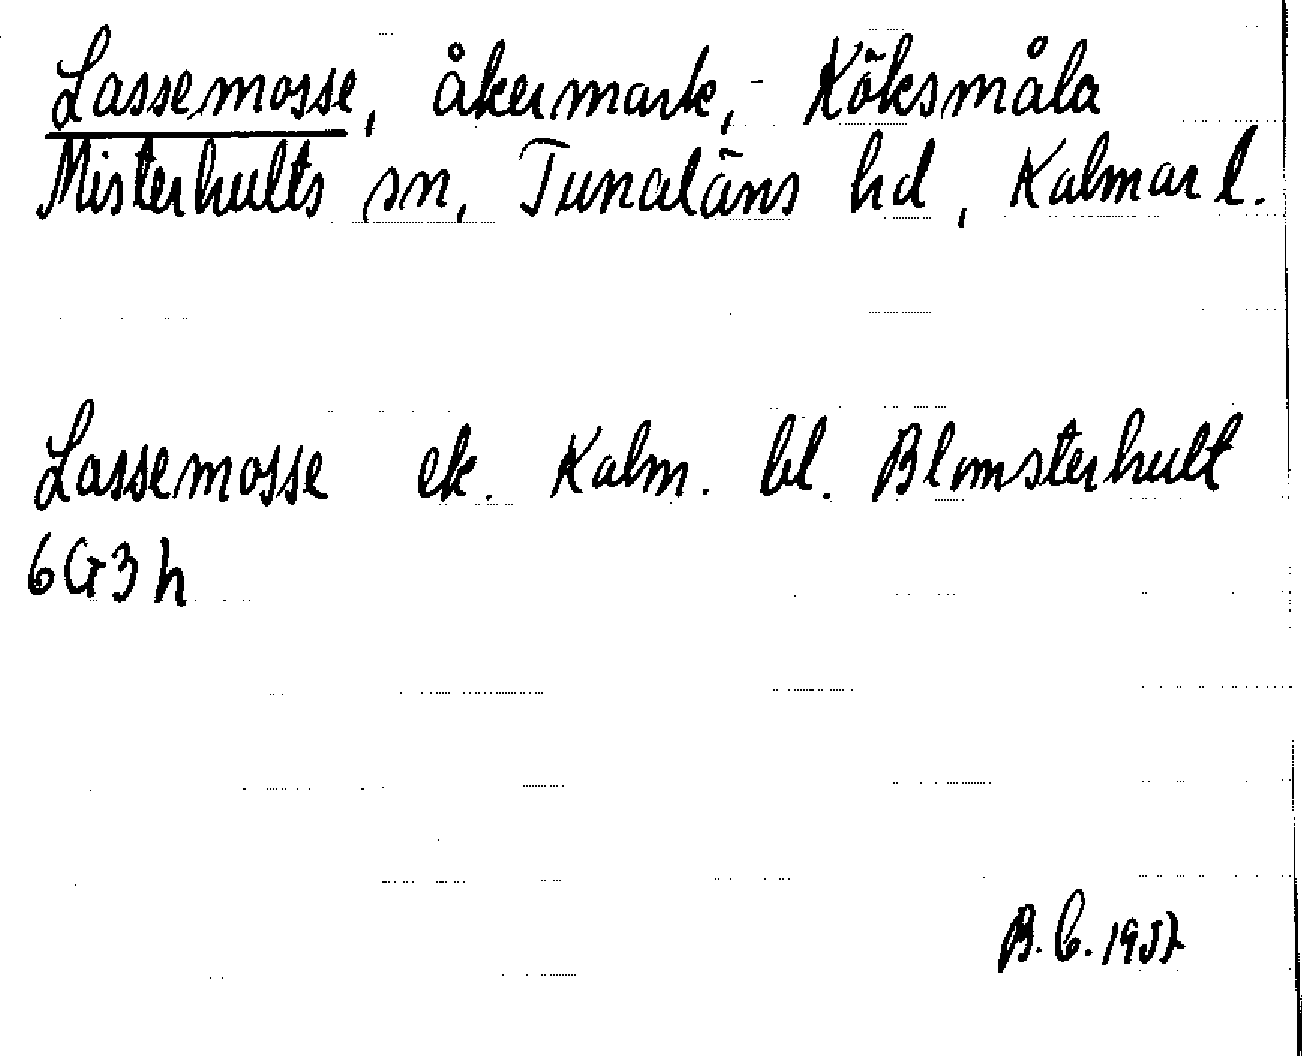 Lassemosse, åkermark, - Köksmåla
Misterhults sn, Tunaläns hd, Kalmar l.
Lassemosse ek. Kalm. bl. Blomsterhult
6G3h
B. C. 1957